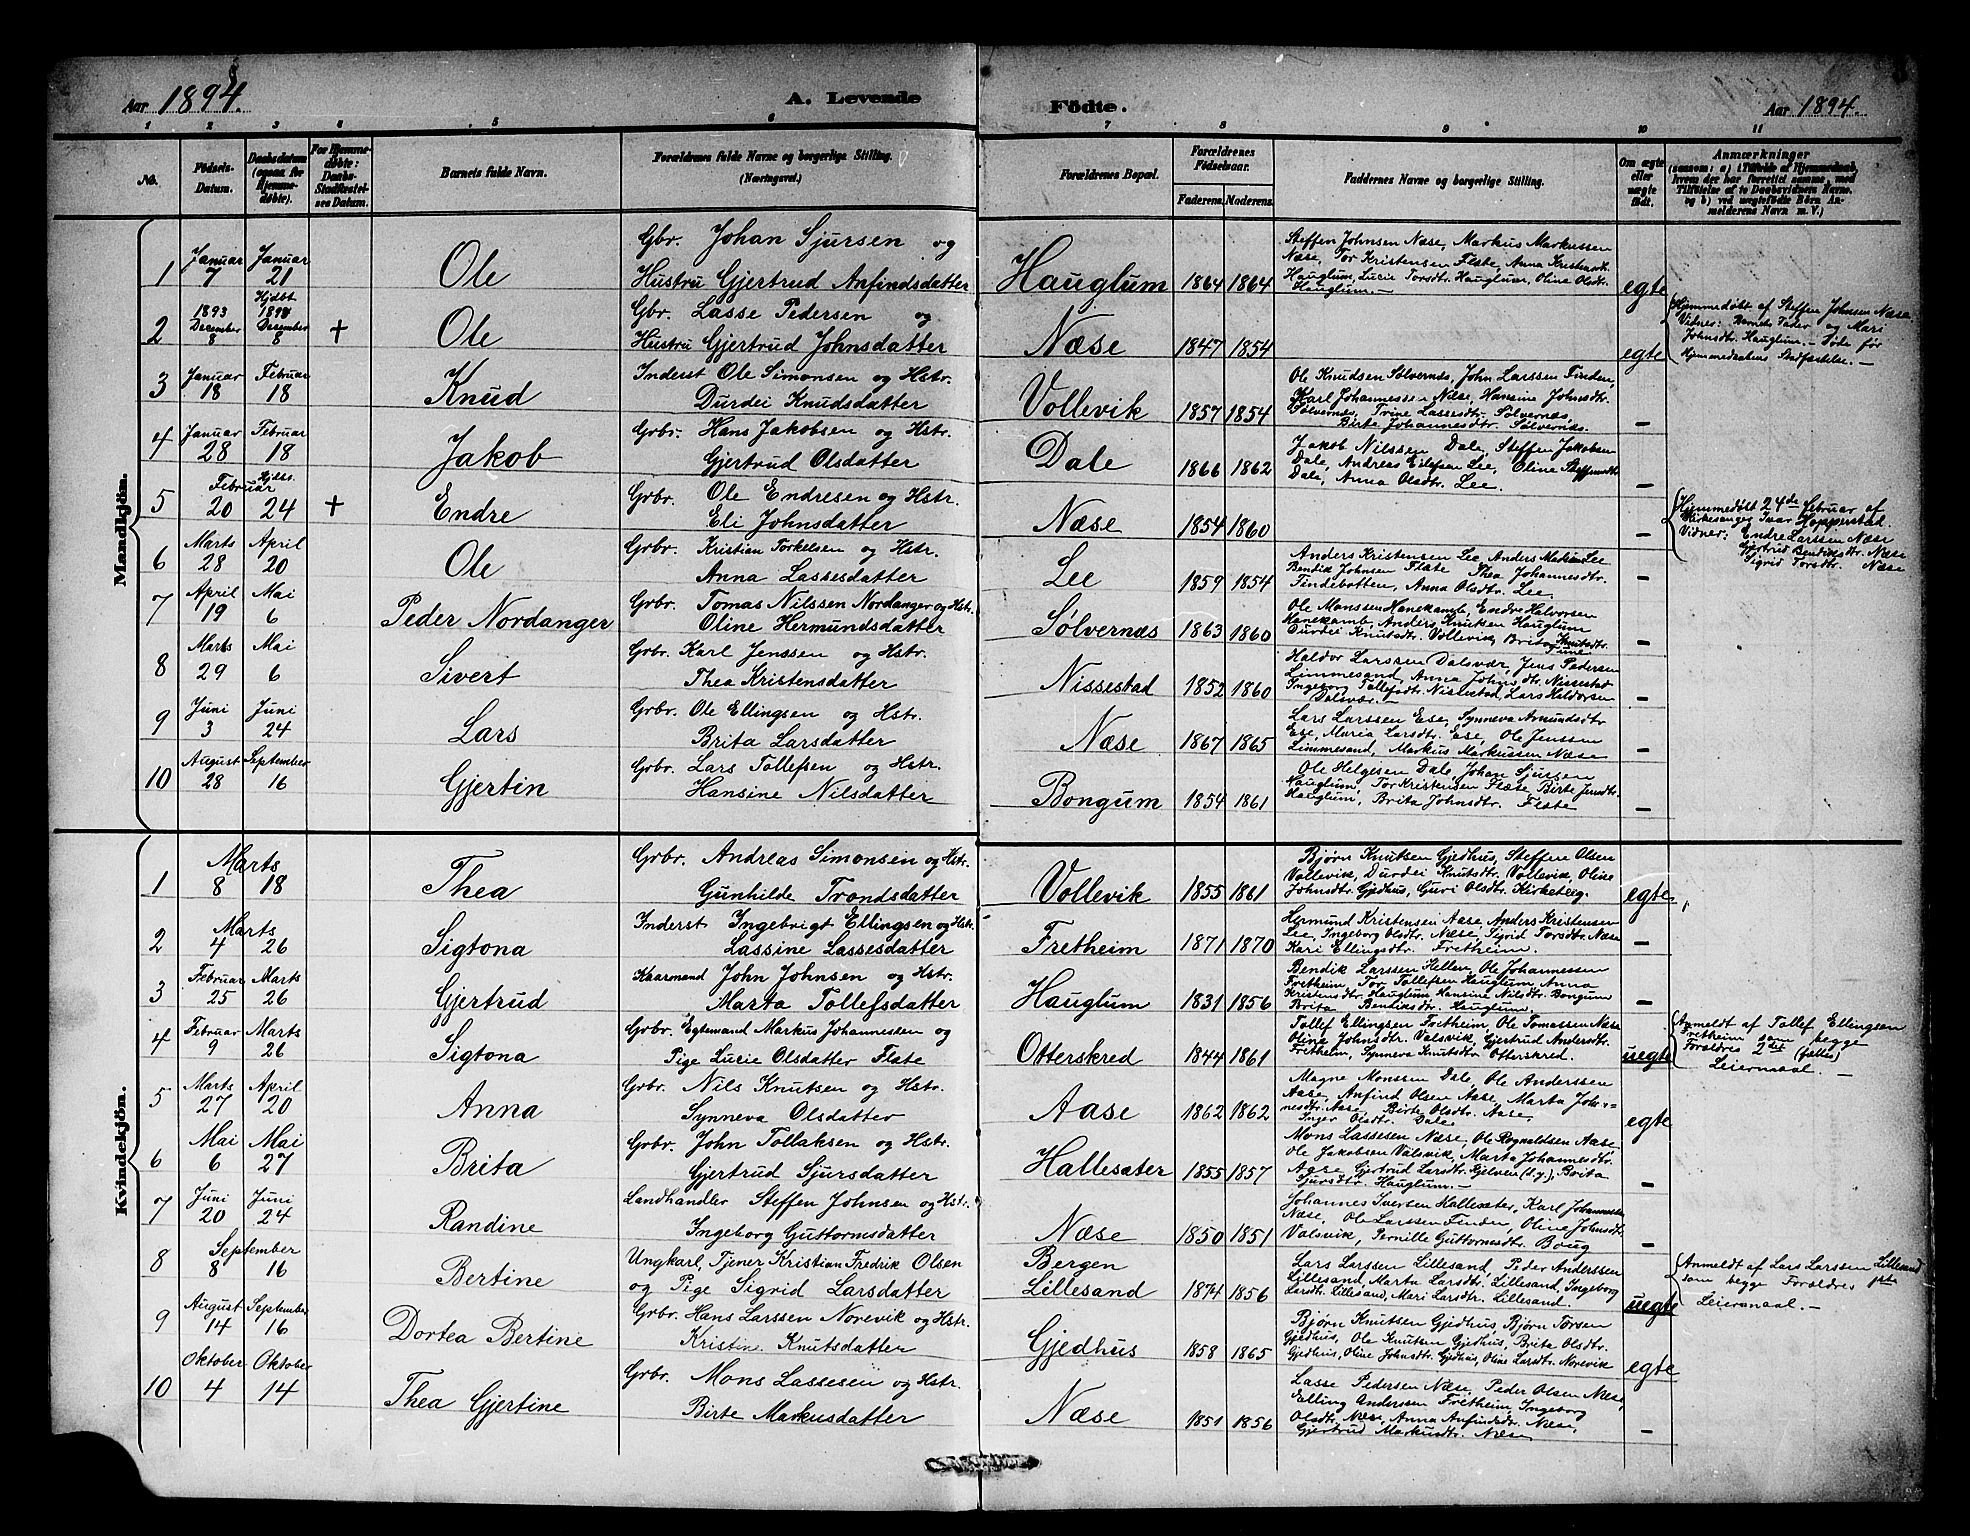 Aar 1894.
A. Levende Födte.
Aar 1894.
1 2 3 4 5 6 7 8 9 10 11
No.
Födsels-Datum.
Daabsdatum (ogsaa for Hjemme-døbte).
For Hjemme-døbte: Daabs-Stadfæstel-ses Datum.
Barnets fulde Navn.
Forældrenes fulde Navne og borgerlige Stilling.
(Næringsvei.)
Forældrenes Bopæl.
Forældrenes Födselsaar.
Faderens. Moderens.
Faddernes Navne og borgerlige Stilling.
Om ægte eller uægte födt.
Anmærkninger
(saasom: a) i Tilfælde af Hjemmedaab, hvem der har forrettet samme, med Tilföielse af to Daabsvidners Navne, og b) ved uægtefödte Börn An-melderens Navn m. V.)
Mandkjön.
1 Januar 7 Januar 21 Ole Gbr. Johan Sjursen og
Hustru Gjertrud Anfindsdatter Hauglum 1864 1864 egte
Steffen Johnsen Næse, Markus Markussen
Næse, Tor Kristensen Flate, Anna Kristensdtr.
Hauglum, Lucie Torsdtr. Hauglum, Olina Olsdtr.
Hauglum.—
2 1893 December 8 Hjdbt. 1893 December 8 + Ole Gbr. Lasse Pedersen og
Hustru Gjertrud Johnsdatter Næse 1847 1854 egte
Hjemmedöbt af Steffen Johnsen Næse.
Vidner: Barnets Fader og Mari
Johnsdtr. Hauglum.— Döde før
Hjemmedaabens Stadfæstelse.—
3 Januar 18 Februar 18 Knud Inderst Ole Simonsen og Hstr.
Durdei Knudsdatter Vollevik 1857 1854 —
Ole Knudsen Sølvernæs, John Larssen Finden,
Karl Johannessen Næse, Hansine Johnsdtr.
Sølvernæs, Trine Lassesdtr. Sølvernæs,
Birte Johannesdtr. Sølvernæs.
4 Januar 28 Februar 18 Jakob Grbr. Hans Jakobsen og Hstr.
Gjertrud Olsdatter Dale 1866 1862 —
Jakob Nilssen Dale, Steffen Jakobsen
Dale, Andreas Eilefsen Lee, Oline Steffensdtr.
Dale, Anna Olsdtr. Lee.
5 Februar 20 Hjdbt. 24 + Endre Grbr. Ole Endresen og Hstr.
Eli Johnsdatter Næse 1854 1860 —
Hjemmedøbt 24de Februar af
Kirkesanger Ivar Hopperstad.
Vidner: Endre Larssen Næse
Gjertrud Bendiksdtr. Næse
Sigrid Torsdtr. Næse
6 Marts 28 April 20 Ole Grbr. Kristian Torkelsen og Hstr.
Anna Lassesdatter Lee 1859 1854 —
Anders Kristensen Lee, Anders Madsen Lee
Bendik Johnsen Flate Thea Johannesdtr.
Tindebotten, Anna Olsdtr. Lee.
7 April 19 Mai 6 Peder Nordanger Grbr. Tomas Nilssen Nordanger og Hstr.
Oline Hermundsdatter Sølvernæs 1863 1860 —
Ole Monssen Hanekamb, Endre Halvorsen
Hanekamb, Anders Knutsen Hauglum
Durdei Knutsdtr. Vollevik, Brita Knutsdtr.
8 Marts 29 Mai 6 Sivert Grbr. Karl Jenssen og Hstr.
Thea Kristensdatter Nissestad 1852 1860 —
Haldor Larssen Dalsvær, Jens Pedersen
Limmesand, Anna Johnsdtr. Nissestad
Ingeborg Tollefsdtr. Nissestad, Lars Haldorsen
Dalsvær.—
9 Juni 3 Juni 24 Lars Grbr. Ole Ellingsen og Hstr.
Brita Larsdatter Næse 1867 1865 —
Lars Larssen Ese, Synneva Amundsdtr
Ese, Maria Larsdtr. Ese, Ole Jenssen
Limmesand, Markus Markussen Næse
10 August 28 September 16 Gjertin Grbr. Lars Tollefsen og Hstr.
Hansine Nilsdatter Bongum 1854 1861 —
Ole Helgesen Dale, Johan Sjursen
Hauglum, Tor Kristensen Flate, Birte Jensdtr.
Hauglum, Brita Johnsdtr. Flate
Kvindekjön.
1 Marts 8 18 Thea Grbr. Andreas Simonsen og Hstr.
Gunhilde Trondsdatter Vollevik 1855 1861 egte
Bjørn Knutsen Gjedhus, Steffen Olsen
Vollevik, Durdei Knutsdtr. Vollevik, Oline
Johnsdtr. Gjedhus, Guri Olsdtr. Kirketeig.
2 Marts 4 26 Sigtona Inderst Ingebrigt Ellingsen og Hstr.
Lassine Lassesdatter Fretheim 1871 1870 —
Hermund Kristensen Aase, Anders Kristensen
Lee, Ingeborg Olsdtr. Næse, Sigrid Torsdtr. Næse
Kari Ellingsdtr. Fretheim.
3 Februar 25 Marts 26 Gjertrud Kaarmand John Johnsen og Hstr.
Marta Tollefsdatter Hauglum 1831 1856 —
Bendik Larssen Hellen, Ole Johannessen
Fretheim, Tor Tollefsen Hauglum, Anna
Kristensdtr Hauglum, Hansine Nilsdtr. Bongum
Brita Bendiksdtr. Hauglum
4 Februar 9 Marts 26 Sigtona Grbr. Egtemand Markus Johannessen og
Pige Lucie Olsdatter Flate Otterskred 1844 1861 uegte
Tollef Ellingsen Fretheim, Ole Tomassen Næse
Oline Johnsdtr. Valsvik, Gjertrud Andersdtr.
Fretheim, Synneva Knutsdtr. Otterskred.
Anmeldt af Tollef Ellingsen
Fretheim som begge
Forældres 2det (fælles)
Leiermaal.—
5 Marts 27 April 20 Anna Grbr. Nils Knutsen og Hstr.
Synneva Olsdatter Aase 1862 1862 egte
Magne Monssen Dale, Ole Anderssen
Aase, Anfind Olsen Aase, Marta Joha-
nesdtr. Aase, Birte Olsdtr. Aase.
Inger Olsdtr. Dale
6 Mai 6 Mai 27 Brita Grbr. John Tollaksen og Hstr.
Gjertrud Sjursdatter Hallesæter 1855 1857 —
Mons Lassesen Næse, Ole Rognaldsen Aase
Ole Jakobsen Valsvik, Marta Johannesdtr.
Aase, Gjertrud Larsdtr. Brita
Sjursdtr. Hauglum.—
7 Juni 20 Juni 24 Randine Landhandler Steffen Johnsen og Hstr.
Ingeborg Guttormsdatter Næse 1850 1851 —
Johannes Iversen Hallesæter, Karl Johannessen
Næse, Ole Larssen Finden, Oline Johnsdtr.
Valsvik, Pernille Guttormsdtr. Boug
8 September 8 16 Bertine Ungkarl, Tjener Kristian Fredrik Olsen Bergen
og Pige Sigrid Larsdatter Lillesand 1874 1856 uegte
Lars Larssen Lillesand, Peder Anderssen
Lillesand, Marta Larsdtr. Lillesand, Ingeborg
Larsdtr. Lillesand, Mari Larsdtr. Lillesand.
Anmeldt af Lars Larssen Lillesand
som begge Forældres 1ste
Leiermaal.—
9 August 14 September 16 Dortea Bertine Grbr. Hans Larssen Norevik og Hstr.
Kristin Knutsdatter Gjedhus 1858 1865 egte
Bjørn Knutsen Gjedhus, Bjørn Torsen
Gjedhus, Ole Knutsen Gjedhus, Brita Olsdtr.
Gjedhus, Oline Johnsdtr. Gjedhus, Oline Larsdtr. Norevik
10 Oktober 4 Oktober 14 Thea Gjertine Grbr. Mons Lassesen og Hstr.
Birte Markusdatter Næse 1851 1856 —
Lasse Pedersen Næse, Peder Olsen Næse,
Elling Anderssen Fretheim, Ingeborg
Olsdtr. Næse, Anna Anfindsdtr. Næse,
Gjertrud Markusdtr. Næse